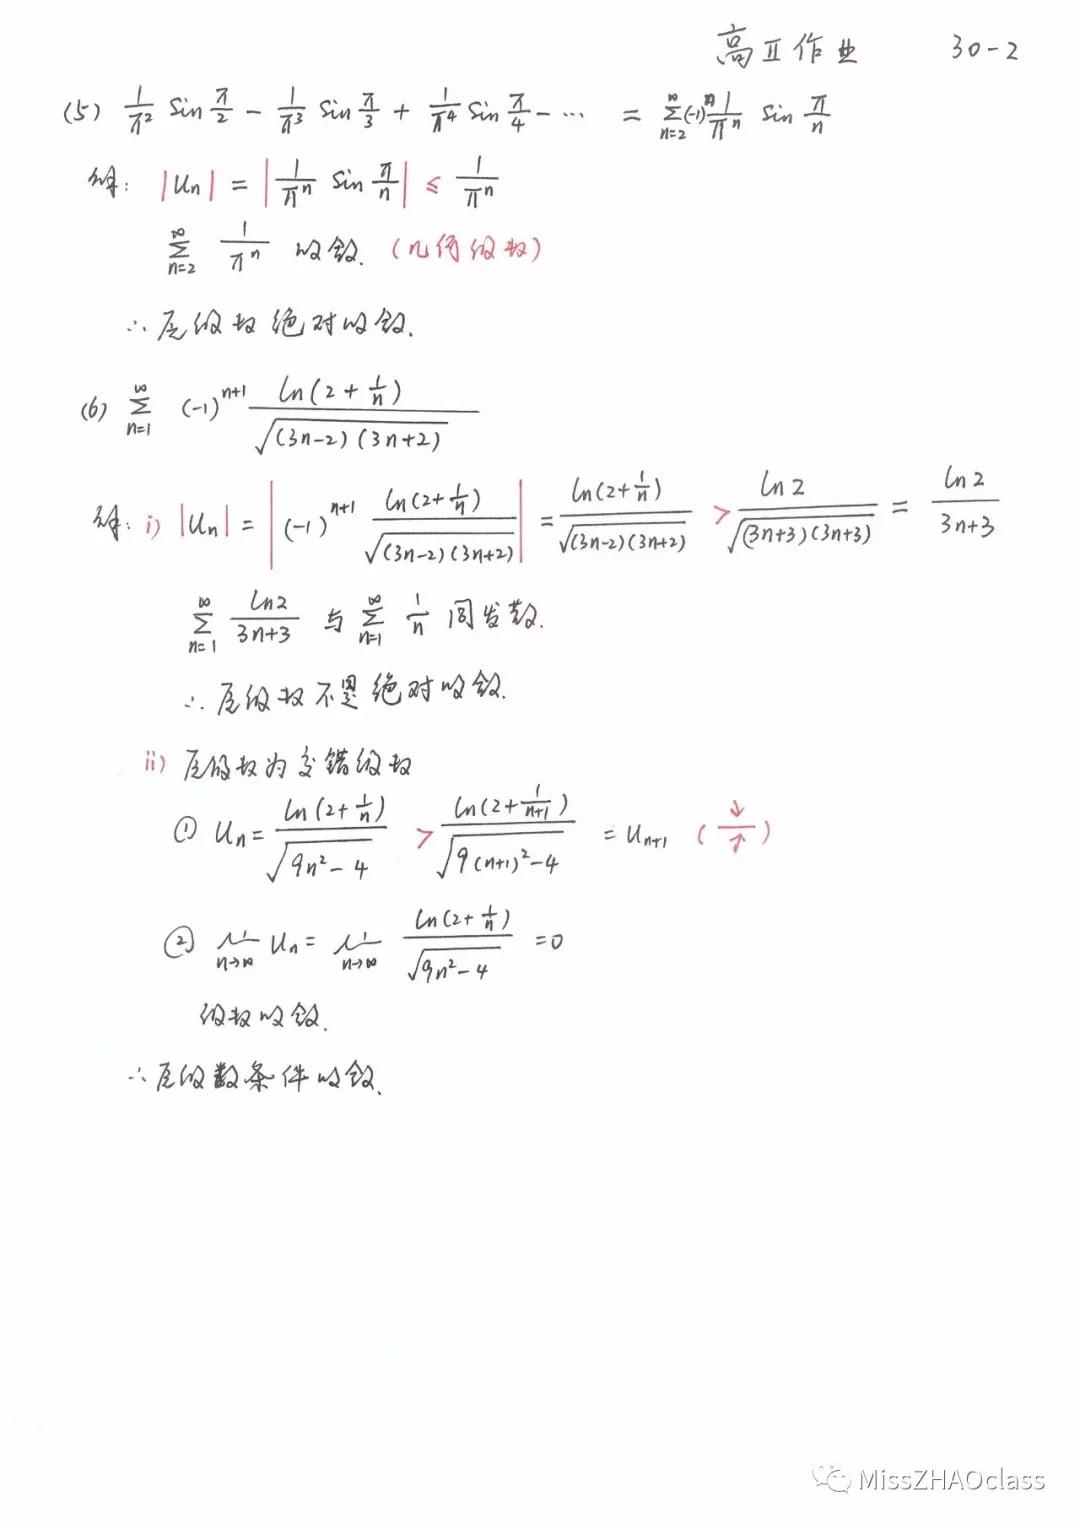 高Ⅱ作业 30-2
(5) 1/π² sin π/2 - 1/π³ sin π/3 + 1/π⁴ sin π/4 - ··· = ∑_{n=2}^{∞} (-1)ⁿ 1/πⁿ sin π/n
解: |Uₙ| = |1/πⁿ sin π/n| ≤ 1/πⁿ
∑_{n=2}^{∞} 1/πⁿ 收敛. (几何级数)
∴ 原级数绝对收敛.
(6) ∑_{n=1}^{∞} (-1)^{n+1} ln(2+1/n)/√((3n-2)(3n+2))
解: i) |Uₙ| = |(-1)^{n+1} ln(2+1/n)/√((3n-2)(3n+2))| = ln(2+1/n)/√((3n-2)(3n+2)) > ln2/√((3n+3)(3n+3)) = ln2/(3n+3)
∑_{n=1}^{∞} ln2/(3n+3) 与 ∑_{n=1}^{∞} 1/n 同发散.
∴ 原级数不是绝对收敛.
ii) 原级数为交错级数
① Uₙ = ln(2+1/n)/√(9n²-4) > ln(2+1/(n+1))/√(9(n+1)²-4) = U_{n+1} (↓/↑)
② lim_{n→∞} Uₙ = lim_{n→∞} ln(2+1/n)/√(9n²-4) = 0
级数收敛.
∴ 原级数条件收敛.
MissZHAOclass